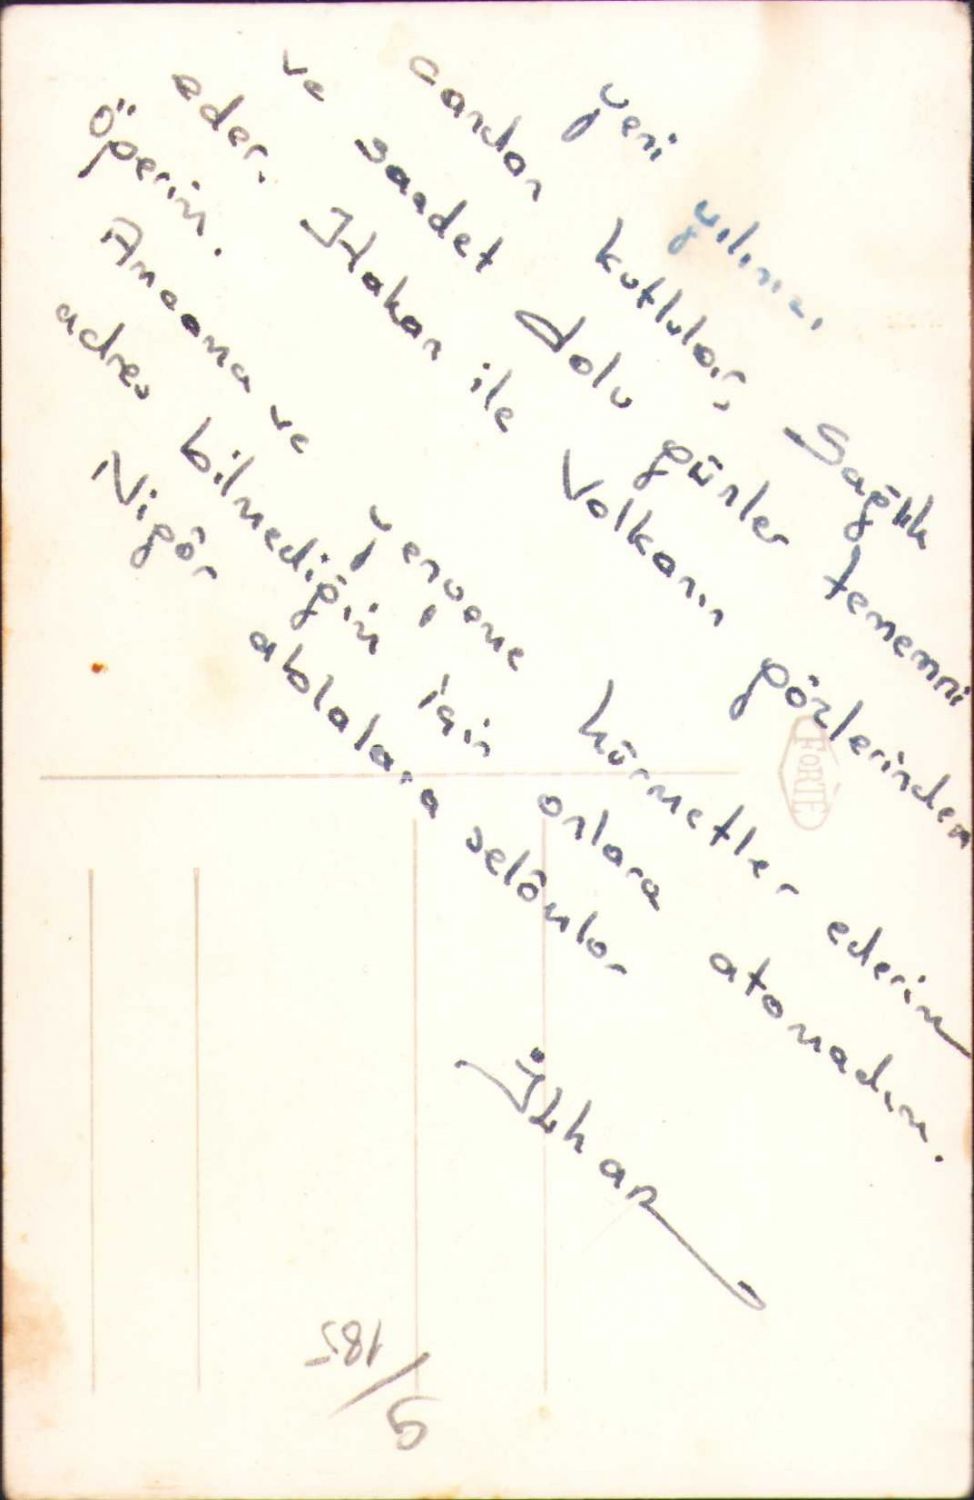 Yeni yılınızı
candan kutlular, Sağlık
ve saadet dolu günler temenni
eder, Hakan ile Volkanın gözlerinden
Öperim.
Anneme ve Yengeme hürmetler ederim
adres bilmediğim için onlara atamadım.
Nigâr ablalara selâmlar
İlhan
FORTE
5/185